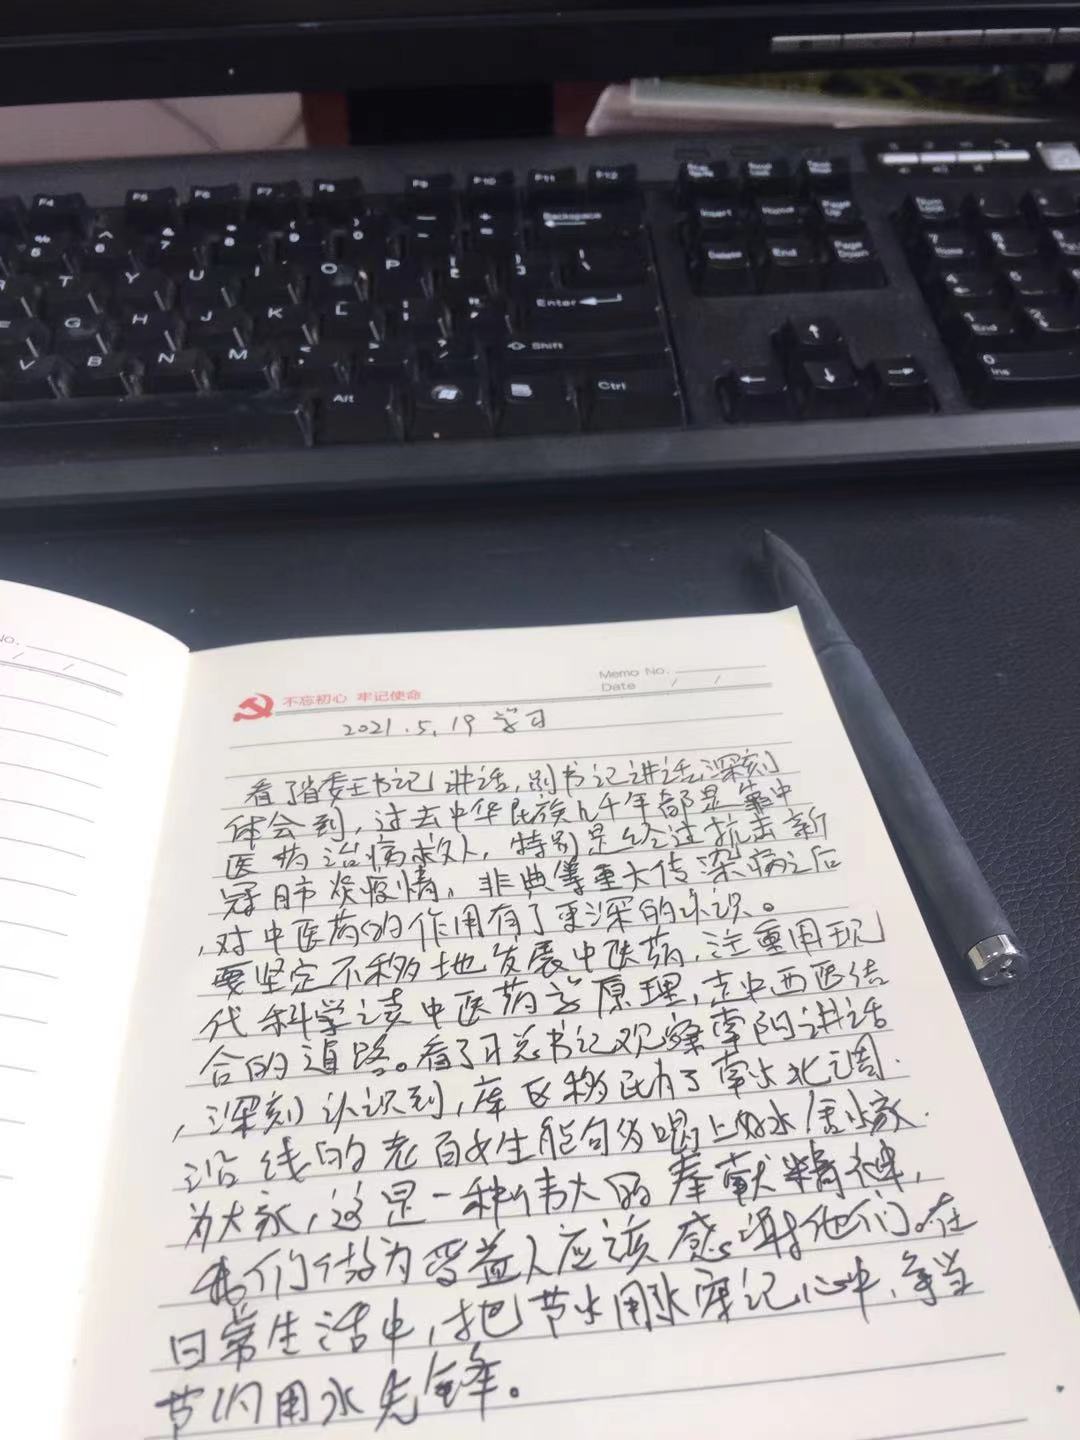 F4 F5 F6 F7 F8 F9 F10 F11 F12
Backspace
Insert Home Page Up
Delete End Page Down
T Y U I O P
Enter
G H J K L
Shift
V B N M
Alt Ctrl
End
0
Ins
No.
Memo No.
Date / /
不忘初心 牢记使命
2021.5.19 学习
看了省委王书记讲话,别书记讲话,深刻
体会到,过去中华民族几千年都是靠中
医药治病救人,特别是经过抗击新
冠肺炎疫情,非典等重大传染病之后
,对中医药的作用有了更深的认识。
要坚定不移地发展中医药,注重用现
代科学读中医药学原理,走中西医结
合的道路。看了习总书记观察南阳讲话
,深刻认识到,库区移民为了南水北调
沿线的老百姓能够喝上好水舍小家
为大家,这是一种伟大的奉献精神,
我们做为受益人应该感谢他们。在
日常生活中,把节水用水牢记心中,争当
节约用水先锋。